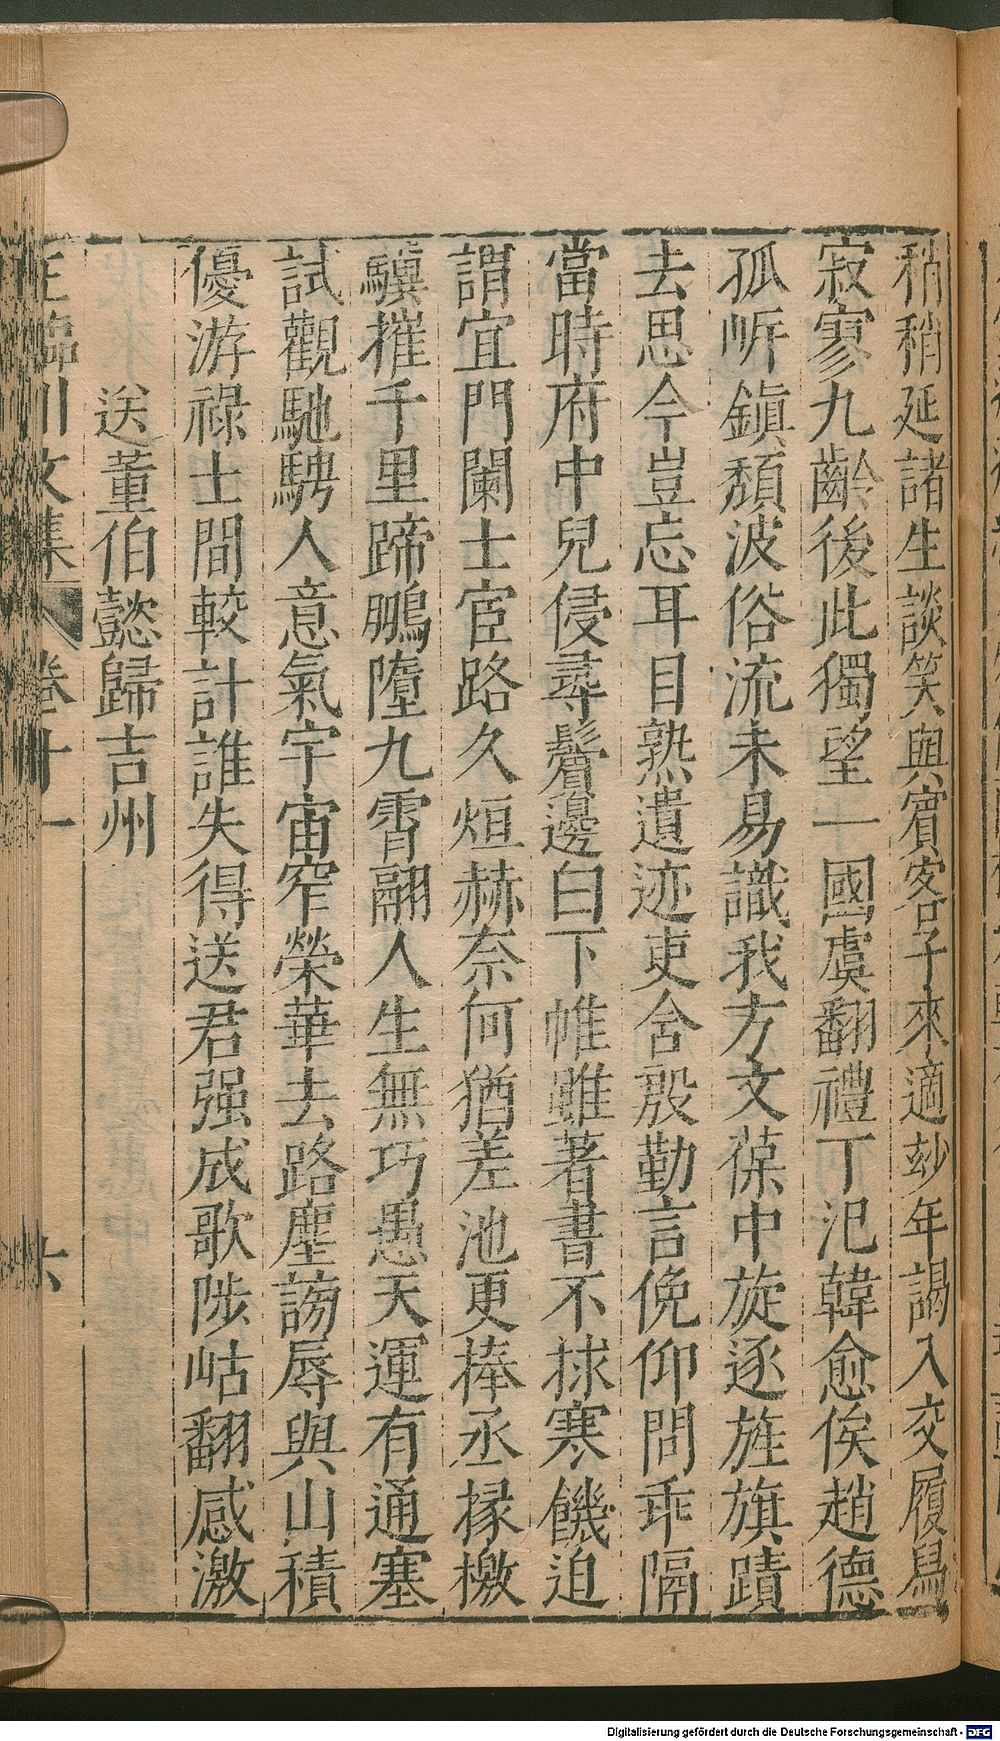 稍稍延諸生談笑與賓客子來適玅年謁入交履舄
寂寥九齡後此獨望一國虞翻禮丁氾韓愈俟趙德
孤岓鎮頹波俗流未易識我方文葆中旋逐旌旗蹟
去思今豈忘耳目熟遺迹吏舍殷勤言俛仰問乖隔
當時府中兒侵尋鬢邊白下帷雖著書不捄寒饑迫
謂宜門闌士宦路久烜赫奈何猶差池更捧丞掾檄
驥摧千里蹄鵬墮九霄翮人生無巧愚天運有通塞
試觀馳騁人意氣宇宙窄榮華去路塵謗辱與山積
優游祿士間較計誰失得送君强成歌陟岵翻感激
送董伯懿歸吉州
王臨川文集 卷十一 六
Digitalisierung gefördert durch die Deutsche Forschungsgemeinschaft - DFG